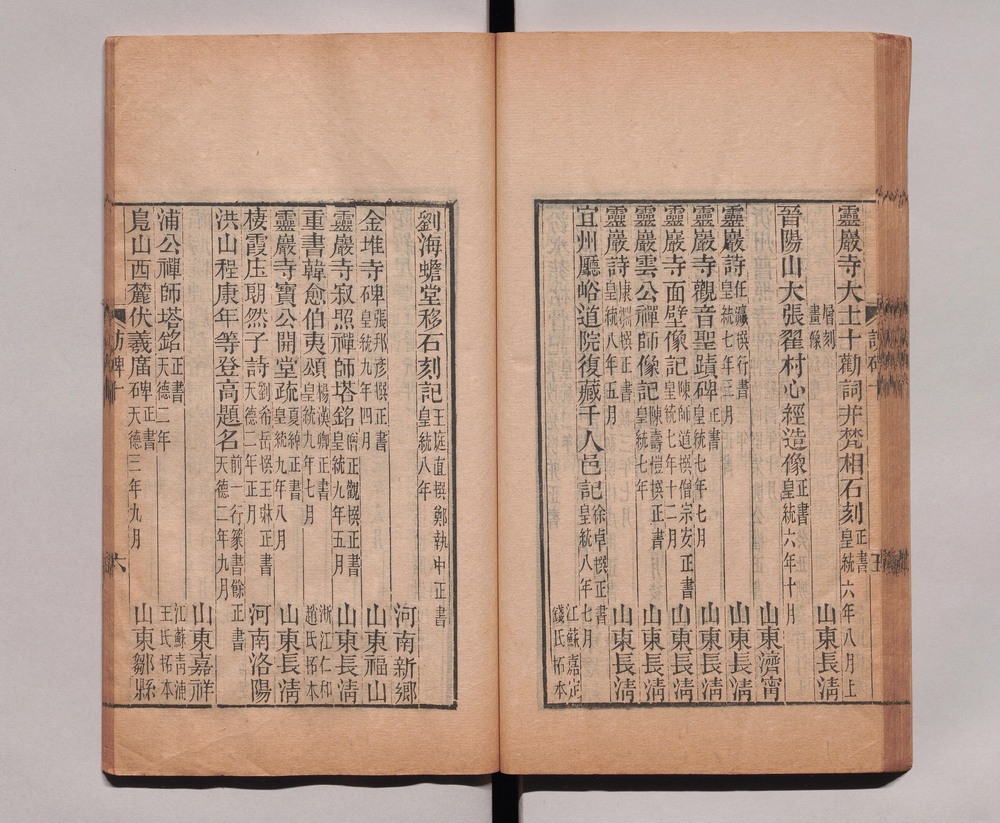 靈巖寺大士十勸詞幷梵相石刻正書皇統六年八月上
層刻畫像 山東長淸
晉陽山大張翟村心經造像正書皇統六年十月
山東濟甯
靈巖詩任瀛撰行書皇統七年三月 山東長淸
靈巖寺觀音聖蹟碑正書皇統七年七月 山東長淸
靈巖寺面壁像記陳師道撰僧宗安正書皇統七年十二月 山東長淸
靈巖雲公禪師像記陳壽愷撰正書皇統七年 山東長淸
靈巖詩康淵撰正書皇統八年五月 山東長淸
宜州廳峪道院復藏千人邑記徐卓撰正書皇統八年七月 江蘇嘉定錢氏拓本
劉海蟾堂移石刻記王庭直撰鄭執中正書皇統八年
河南新鄉
金堆寺碑張邦彥撰正書皇統九年四月 山東福山
靈巖寺寂照禪師塔銘僧正觀撰正書皇統九年五月 山東長淸
重書韓愈伯夷頌楊漢卿正書皇統九年七月 浙江仁和趙氏拓本
靈巖寺寶公開堂疏夏綽正書皇統九年八月 山東長淸
棲霞庄明然子詩劉希岳撰王琳正書天德二年正月 河南洛陽
洪山程康年等登高題名前一行篆書餘正書天德二年九月
山東嘉祥
浦公禪師塔銘正書天德二年 江蘇靑浦王氏拓本
鳧山西麓伏羲廣碑正書天德三年九月 山東鄒縣
訪碑十
六